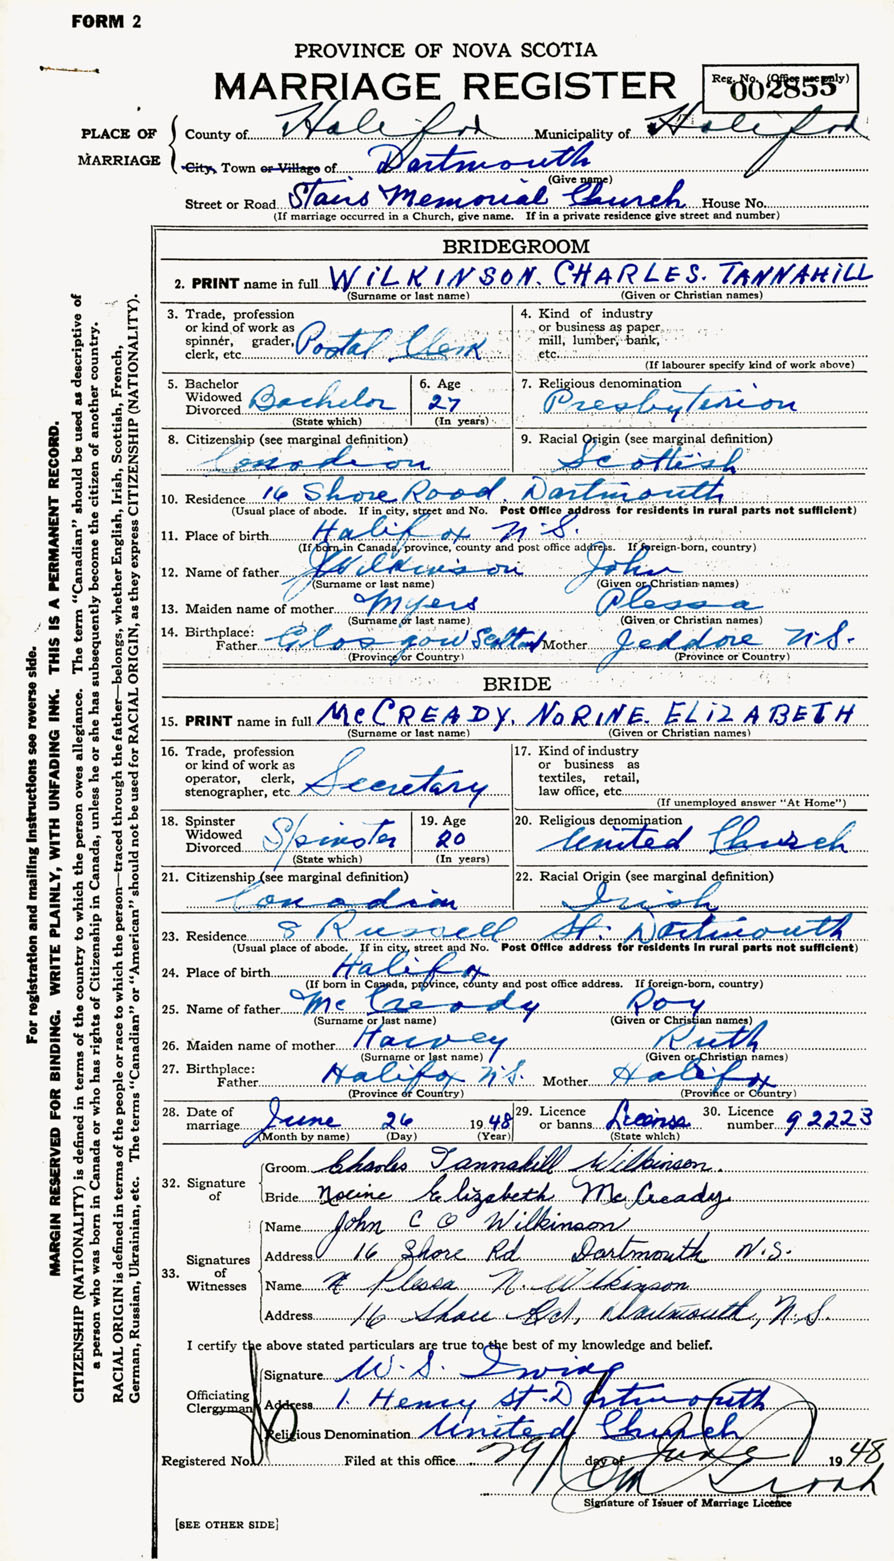 FORM 2
PROVINCE OF NOVA SCOTIA
MARRIAGE REGISTER
Reg. No. (Office use only)
002855
PLACE OF MARRIAGE
County of Halifax Municipality of Halifax
City, Town or Village of Dartmouth
(Give name)
Street or Road Stairs Memorial Church House No.
(If marriage occurred in a Church, give name. If in a private residence give street and number)
BRIDEGROOM
2. PRINT name in full WILKINSON. CHARLES. TANNAHILL
(Surname or last name) (Given or Christian names)
3. Trade, profession or kind of work as spinner, grader, clerk, etc. Postal Clerk
4. Kind of industry or business as paper mill, lumber, bank, etc.
(If labourer specify kind of work above)
5. Bachelor Widowed Divorced Bachelor
(State which)
6. Age 27
(In years)
7. Religious denomination
Presbyterian
8. Citizenship (see marginal definition)
Canadian
9. Racial Origin (see marginal definition)
Scottish
10. Residence 16 Shore Road. Dartmouth
(Usual place of abode. If in city, street and No. Post Office address for residents in rural parts not sufficient)
11. Place of birth Halifax N.S.
(If born in Canada, province, county and post office address. If foreign-born, country)
12. Name of father Wilkinson John
(Surname or last name) (Given or Christian names)
13. Maiden name of mother Myers Plessa
(Surname or last name) (Given or Christian names)
14. Birthplace: Father Glasgow Scotland Mother Jeddore N.S.
(Province or Country) (Province or Country)
BRIDE
15. PRINT name in full McCREADY. NORINE. ELIZABETH
(Surname or last name) (Given or Christian names)
16. Trade, profession or kind of work as operator, clerk, stenographer, etc. Secretary
17. Kind of industry or business as textiles, retail, law office, etc.
(If unemployed answer "At Home")
18. Spinster Widowed Divorced Spinster
(State which)
19. Age 20
(In years)
20. Religious denomination
United Church
21. Citizenship (see marginal definition)
Canadian
22. Racial Origin (see marginal definition)
Irish
23. Residence 8 Russell St. Dartmouth
(Usual place of abode. If in city, street and No. Post Office address for residents in rural parts not sufficient)
24. Place of birth Halifax
(If born in Canada, province, county and post office address. If foreign-born, country)
25. Name of father Mc Cready Roy
(Surname or last name) (Given or Christian names)
26. Maiden name of mother Harvey Ruth
(Surname or last name) (Given or Christian names)
27. Birthplace: Father Halifax N.S. Mother Halifax
(Province or Country) (Province or Country)
28. Date of marriage June 26 1948
(Month by name) (Day) (Year)
29. Licence or banns License
(State which)
30. Licence number 92223
32. Signature of
Groom Charles Tannahill Wilkinson.
Bride Norine Elizabeth McCready
33. Signatures of Witnesses
Name John C O Wilkinson
Address 16 Shore Rd Dartmouth N.S.
Name Plessa N. Wilkinson
Address 16 Shore Rd, Dartmouth, N.S.
I certify the above stated particulars are true to the best of my knowledge and belief.
Officiating Clergyman
Signature W. S. Irving
Address 1. Henry St. Dartmouth
Religious Denomination United Church
Registered No. Filed at this office 29 day of June 1948
Signature of Issuer of Marriage Licence
[SEE OTHER SIDE]
For registration and mailing instructions see reverse side.
MARGIN RESERVED FOR BINDING. WRITE PLAINLY, WITH UNFADING INK. THIS IS A PERMANENT RECORD.
CITIZENSHIP (NATIONALITY) is defined in terms of the country to which the person owes allegiance. The term "Canadian" should be used as descriptive of
a person who was born in Canada or who has rights of Citizenship in Canada, unless he or she has subsequently become the citizen of another country.
RACIAL ORIGIN is defined in terms of the people or race to which the person—traced through the father—belongs, whether English, Irish, Scottish, French,
German, Russian, Ukrainian, etc. The terms "Canadian" or "American" should not be used for RACIAL ORIGIN, as they express CITIZENSHIP (NATIONALITY).